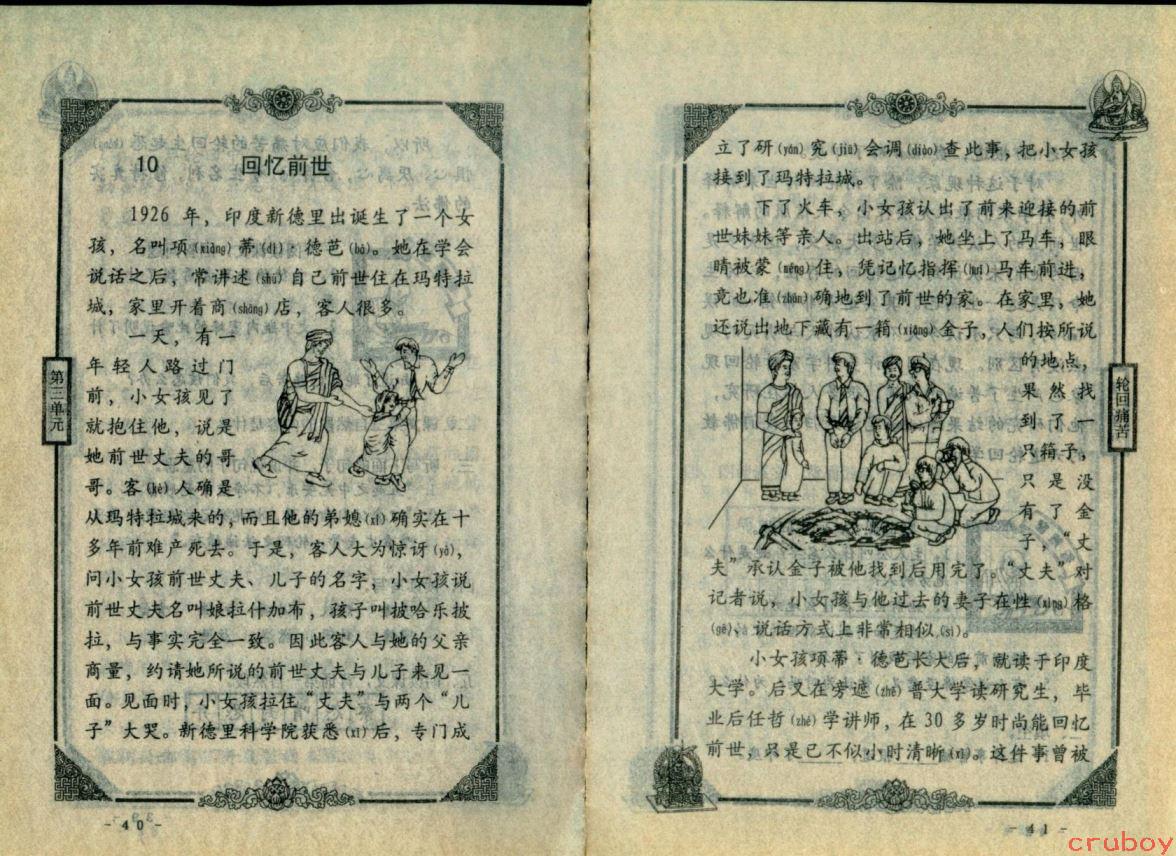 10 回忆前世
1926 年，印度新德里出诞生了一个女
孩，名叫项(xiàng)蒂(dì)·德芭(bā)。她在学会
说话之后，常讲述(shù)自己前世住在玛特拉
城，家里开着商(shāng)店，客人很多。
一天，有一
年轻人路过门
前，小女孩见了
就抱住他，说是
她前世丈夫的哥
哥。客(kè)人确是
从玛特拉城来的，而且他的弟媳(xí)确实在十
多年前难产死去。于是，客人大为惊讶(yà)，
问小女孩前世丈夫、儿子的名字，小女孩说
前世丈夫名叫娘拉什加布，孩子叫披哈乐披
拉，与事实完全一致。因此客人与她的父亲
商量，约请她所说的前世丈夫与儿子来见一
面。见面时，小女孩拉住“丈夫”与两个“儿
子”大哭。新德里科学院获悉(xī)后，专门成
第三单元
- 40 -
立了研(yán)究(jiū)会调(diào)查此事，把小女孩
接到了玛特拉城。
下了火车，小女孩认出了前来迎接的前
世妹妹等亲人。出站后，她坐上了马车，眼
睛被蒙(méng)住，凭记忆指挥(huī)马车前进，
竟也准(zhǔn)确地到了前世的家。在家里，她
还说出地下藏有一箱(xiāng)金子，人们按所说
的地点，
果然找
到了一
只箱子，
只是没
有了金
子，“丈
夫”承认金子被他找到后用完了。“丈夫”对
记者说，小女孩与他过去的妻子在性(xìng)格
(gé)、说话方式上非常相似(sì)。
小女孩项蒂·德芭长大后，就读于印度
大学。后又在旁遮(zhē)普大学读研究生，毕
业后任哲(zhé)学讲师，在 30 多岁时尚能回忆
前世，只是已不似小时清晰(xī)。这件事曾被
轮回痛苦
- 41 -
cruboy